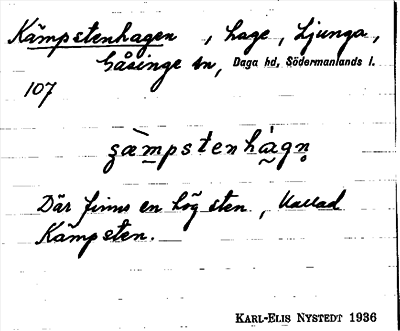 Kämpstenhagen, hage, Ljunga,
Gåsinge sn, Daga hd, Södermanlands l.
107
ʒæ̀mpstenhàgn̥
Där finns en hög sten, kallad
Kämpsten.
KARL-ELIS NYSTEDT 1936